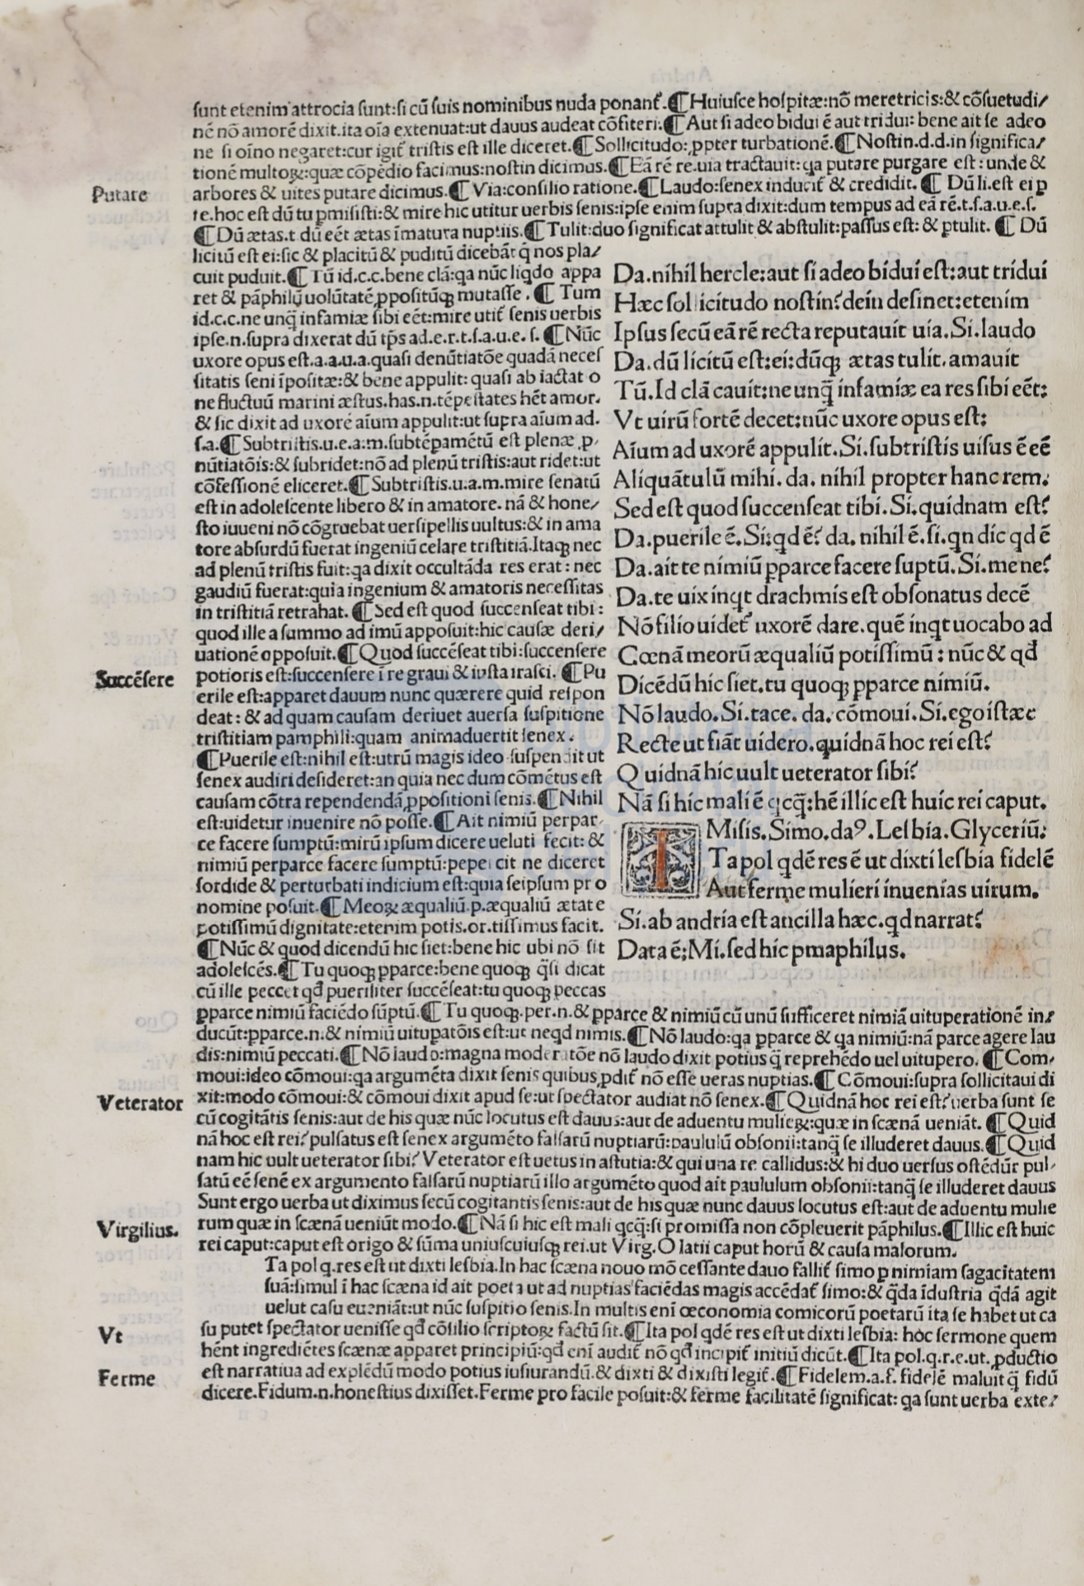 sunt etenim attrocia sunt:si cū suis nominibus nuda ponant᷑.¶Huiusce hospitæ:nō meretricis:& cōsuetudi/
nē nō amorē dixit.ita oīa extenuat:ut dauus audeat cōfiteri.¶Aut si adeo bidui ē aut tridui: bene ait se adeo
ne si oīno negaret:cur igit᷑ tristis est ille diceret.¶Sollicitudo:ꝓpter turbationē.¶Nostin.d.d.in significa/
tionē multoꝝ:quæ cōpēdio facimus:nostin dicimus.¶Eā rē re.uia tractauit:qa putare purgare est:unde &
Putare
arbores & uites putare dicimus.¶Via:consilio ratione.¶Laudo:senex inducit᷑ & credidit.¶Dū li.est ei p
te.hoc est dū tu pmisisti:& mire hic utitur uerbis senis:ipse enim supra dixit:dum tempus ad eā rē.t.s.a.u.e.s.
¶Dū ætas.t dū eēt ætas īmatura nuptiis.¶Tulit:duo significat attulit & abstulit:passus est:& ptulit.¶Dū
licitū est ei:sic & placitū & puditū dicebāt q̄ nos pla/
cuit puduit.¶Tū id.c.c.bene clā:qa nūc liqdo appa
ret & pāphilū uolūtatē ꝓpositūqꝫ mutasse.¶Tum
id.c.c.ne unq̄ infamiæ sibi eēt:mire utit᷑ senis uerbis
ipse.n.supra dixerat dū tp̄s ad.e.r.t.s.a.u.e.s.¶Nūc
uxore opus est.a.a.u.a.quasi denūtiatōe quadā neces
sitatis seni īpositæ:& bene appulit:quasi ab iactat o
ne fluctuū marini æstus.has.n.tēpestates hēt amor.
& sic dixit ad uxorē aīum appulit:ut supra aīum ad.
s.a.¶Subtristis.u.e.a:m.subtēpamētū est plenæ ꝓ
nūtiatōis:& subridet:nō ad plenū tristis:aut ridet:ut
cōfessionē eliceret.¶Subtristis.u.a.m.mire senatū
est in adolescente libero & in amatore.nā & hone/
sto iuueni nō cōgruebat uersipellis uultus:& in ama
tore absurdū fuerat ingeniū celare tristitiā.Itaqꝫ nec
ad plenū tristis fuit:qa dixit occultāda res erat:nec
gaudiū fuerat:quia ingenium & amatoris necessitas
in tristitiā retrahat.¶Sed est quod succenseat tibi:
quod ille a summo ad imū apposuit:hic causæ deri/
uationē opposuit.¶Quod succēseat tibi:succensere
Succēsere
potioris est:succensere ī re graui & iusta irasci.¶Pu
erile est:apparet dauum nunc quærere quid respon
deat:& ad quam causam deriuet auersa suspitione
tristitiam pamphili:quam animaduertit senex.
¶Puerile est:nihil est:utrū magis ideo suspendit ut
senex audiri desideret:an quia nec dum cōmētus est
causam cōtra rependendā ꝓpositioni senis.¶Nihil
est:uidetur inuenire nō posse.¶Ait nimiū perpar
ce facere sumptū:mirū ipsum dicere ueluti fecit:&
nimiū perparce facere sumptū:pepercit ne diceret
sordide & perturbati indicium est:quia seipsum pro
nomine posuit.¶Meoꝝ æqualiū.p.æqualiū ætate
potissimū dignitate:etenim potis.or.tissimus facit.
¶Nūc & quod dicendū hic siet:bene hic ubi nō sit
adolescēs.¶Tu quoqꝫ pparce:bene quoqꝫ q̄si dicat
cū ille peccet qđ pueriliter succēseat:tu quoqꝫ peccas
Da.nihil hercle:aut si adeo bidui est:aut tridui
Hæc sollicitudo nostin?dein desinet:etenim
Ipsus secū eā rē recta reputauit uia.Si.laudo
Da.dū licitū est:ei:dūqꝫ ætas tulit.amauit
Tū.Id clā cauit:ne unq̄ infamiæ ea res sibi eēt:
Vt uirū fortē decet:nūc uxore opus est:
Aīum ad uxorē appulit.Si.subtristis uisus ē eē
Aliquātulū mihi.da.nihil propter hanc rem.
Sed est quod succenseat tibi.Si.quidnam est?
Da.puerile ē.Si:qd ē?da.nihil ē.si.qn dic qd ē
Da.ait te nimiū pparce facere sūptū.Si.mene?
Da.te uix inqt drachmis est obsonatus decē
Nō filio uidet᷑ uxorē dare.quē inqt uocabo ad
Cœnā meorū æqualiū potissimū:nūc & qđ
Dicēdū hic siet.tu quoqꝫ pparce nimiū.
Nō laudo.Si.tace.da.cōmoui.Si.ego istæc
Recte ut fiāt uidero.quidnā hoc rei est?
Quidnā hic uult ueterator sibi?
Nā si hic mali ē qcq̄:hē illic est huic rei caput.
I Misis.Simo.daꝰ.Lesbia.Glyceriū:
Ta pol qdē res ē ut dixti lesbia fidelē
Aut ferme mulieri inuenias uirum.
Si.ab andria est ancilla hæc.qd narrat?
Data ē:Mi.sed hic pmaphilus.
pparce nimiū faciēdo sūptū.¶Tu quoqꝫ.per.n.& pparce & nimiū cū unū sufficeret nimiā uituperationē in/
ducūt:pparce.n.& nimiū uitupatōis est:ut neqd nimis.¶Nō laudo:qa pparce & qa nimiū:nā parce agere lau
dis:nimiū peccati.¶Nō laudo:magna moderatōe nō laudo dixit potius q̄ reprehēdo uel uitupero.¶Com/
moui:ideo cōmoui:qa argumēta dixit senis quibus ꝓdit᷑ nō esse ueras nuptias.¶Cōmoui:supra sollicitaui di
Veterator
xit:modo cōmoui:& cōmoui dixit apud se:ut spectator audiat nō senex.¶Quidnā hoc rei est?uerba sunt se
cū cogitātis senis:aut de his quæ nūc locutus est dauus:aut de aduentu mulieꝝ:quæ in scænā ueniāt.¶Quid
nā hoc est rei?pulsatus est senex argumēto falsarū nuptiarū:paululū obsonii:tanq̄ se illuderet dauus.¶Quid
nam hic uult ueterator sibi?Veterator est uetus in astutia:& qui una re callidus:& hi duo uersus ostēdūr pul/
satū eē senē ex argumento falsarū nuptiarū illo argumēto quod ait paululum obsonii:tanq̄ se illuderet dauus
Sunt ergo uerba ut diximus secū cogitantis senis:aut de his quæ nunc dauus locutus est:aut de aduentu mulie
Virgilius.
rum quæ in scænā ueniūt modo.¶Nā si hic est mali qcq̄:si promissa non cōpleuerit pāphilus.¶Illic est huic
rei caput:caput est origo & sūma uniuscuiusqꝫ rei.ut Virg.O latii caput horū & causa malorum.
Ta pol q.res est ut dixti lesbia.In hac scæna nouo mō cessante dauo fallit᷑ simo p nimiam sagacitatem
suā:simul ī hac scæna id ait poeta ut ad nuptias faciēdas magis accēdat᷑ simo:& q̄da īdustria q̄dā agit
uelut casu eueniāt:ut nūc suspitio senis.In multis enī œconomia comicorū poetarū ita se habet ut ca
Vt
su putet spectator uenisse qđ cōsilio scriptoꝝ factū sit.¶Ita pol qdē res est ut dixti lesbia:hoc sermone quem
hēnt ingrediētes scænæ apparet principiū:qđ enī audit᷑ nō qđ incipit᷑ initiū dicūt.¶Ita pol.q.r.e.ut.ꝓductio
Ferme
est narratiua ad explēdū modo potius iusiurandū.& dixti & dixisti legit᷑.¶Fidelem.a.f.fidelē maluit q̄ fidū
dicere.Fidum.n.honestius dixisset.Ferme pro facile posuit:& ferme facilitatē significat:qa sunt uerba exte/